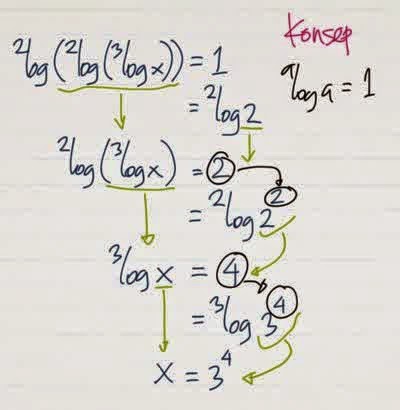 Konsep
ᵃlog a = 1
²log(²log(³log x)) = 1
= ²log 2
²log(³log x) = 2
= ²log 2²
³log x = 4
= ³log 3⁴
x = 3⁴